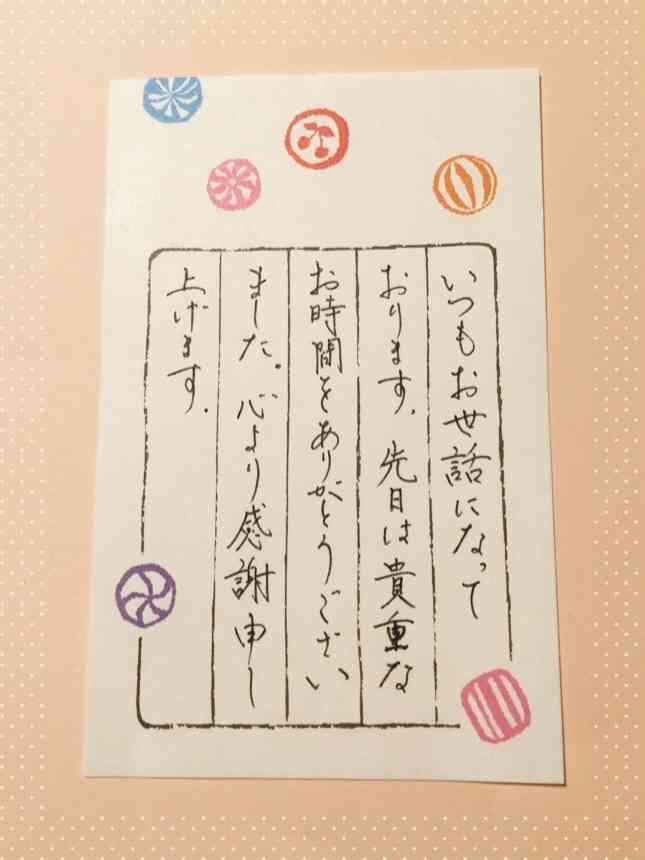 いつもお世話になって
おります。先日は貴重な
お時間をありがとうござい
ました。心より感謝申し
上げます。